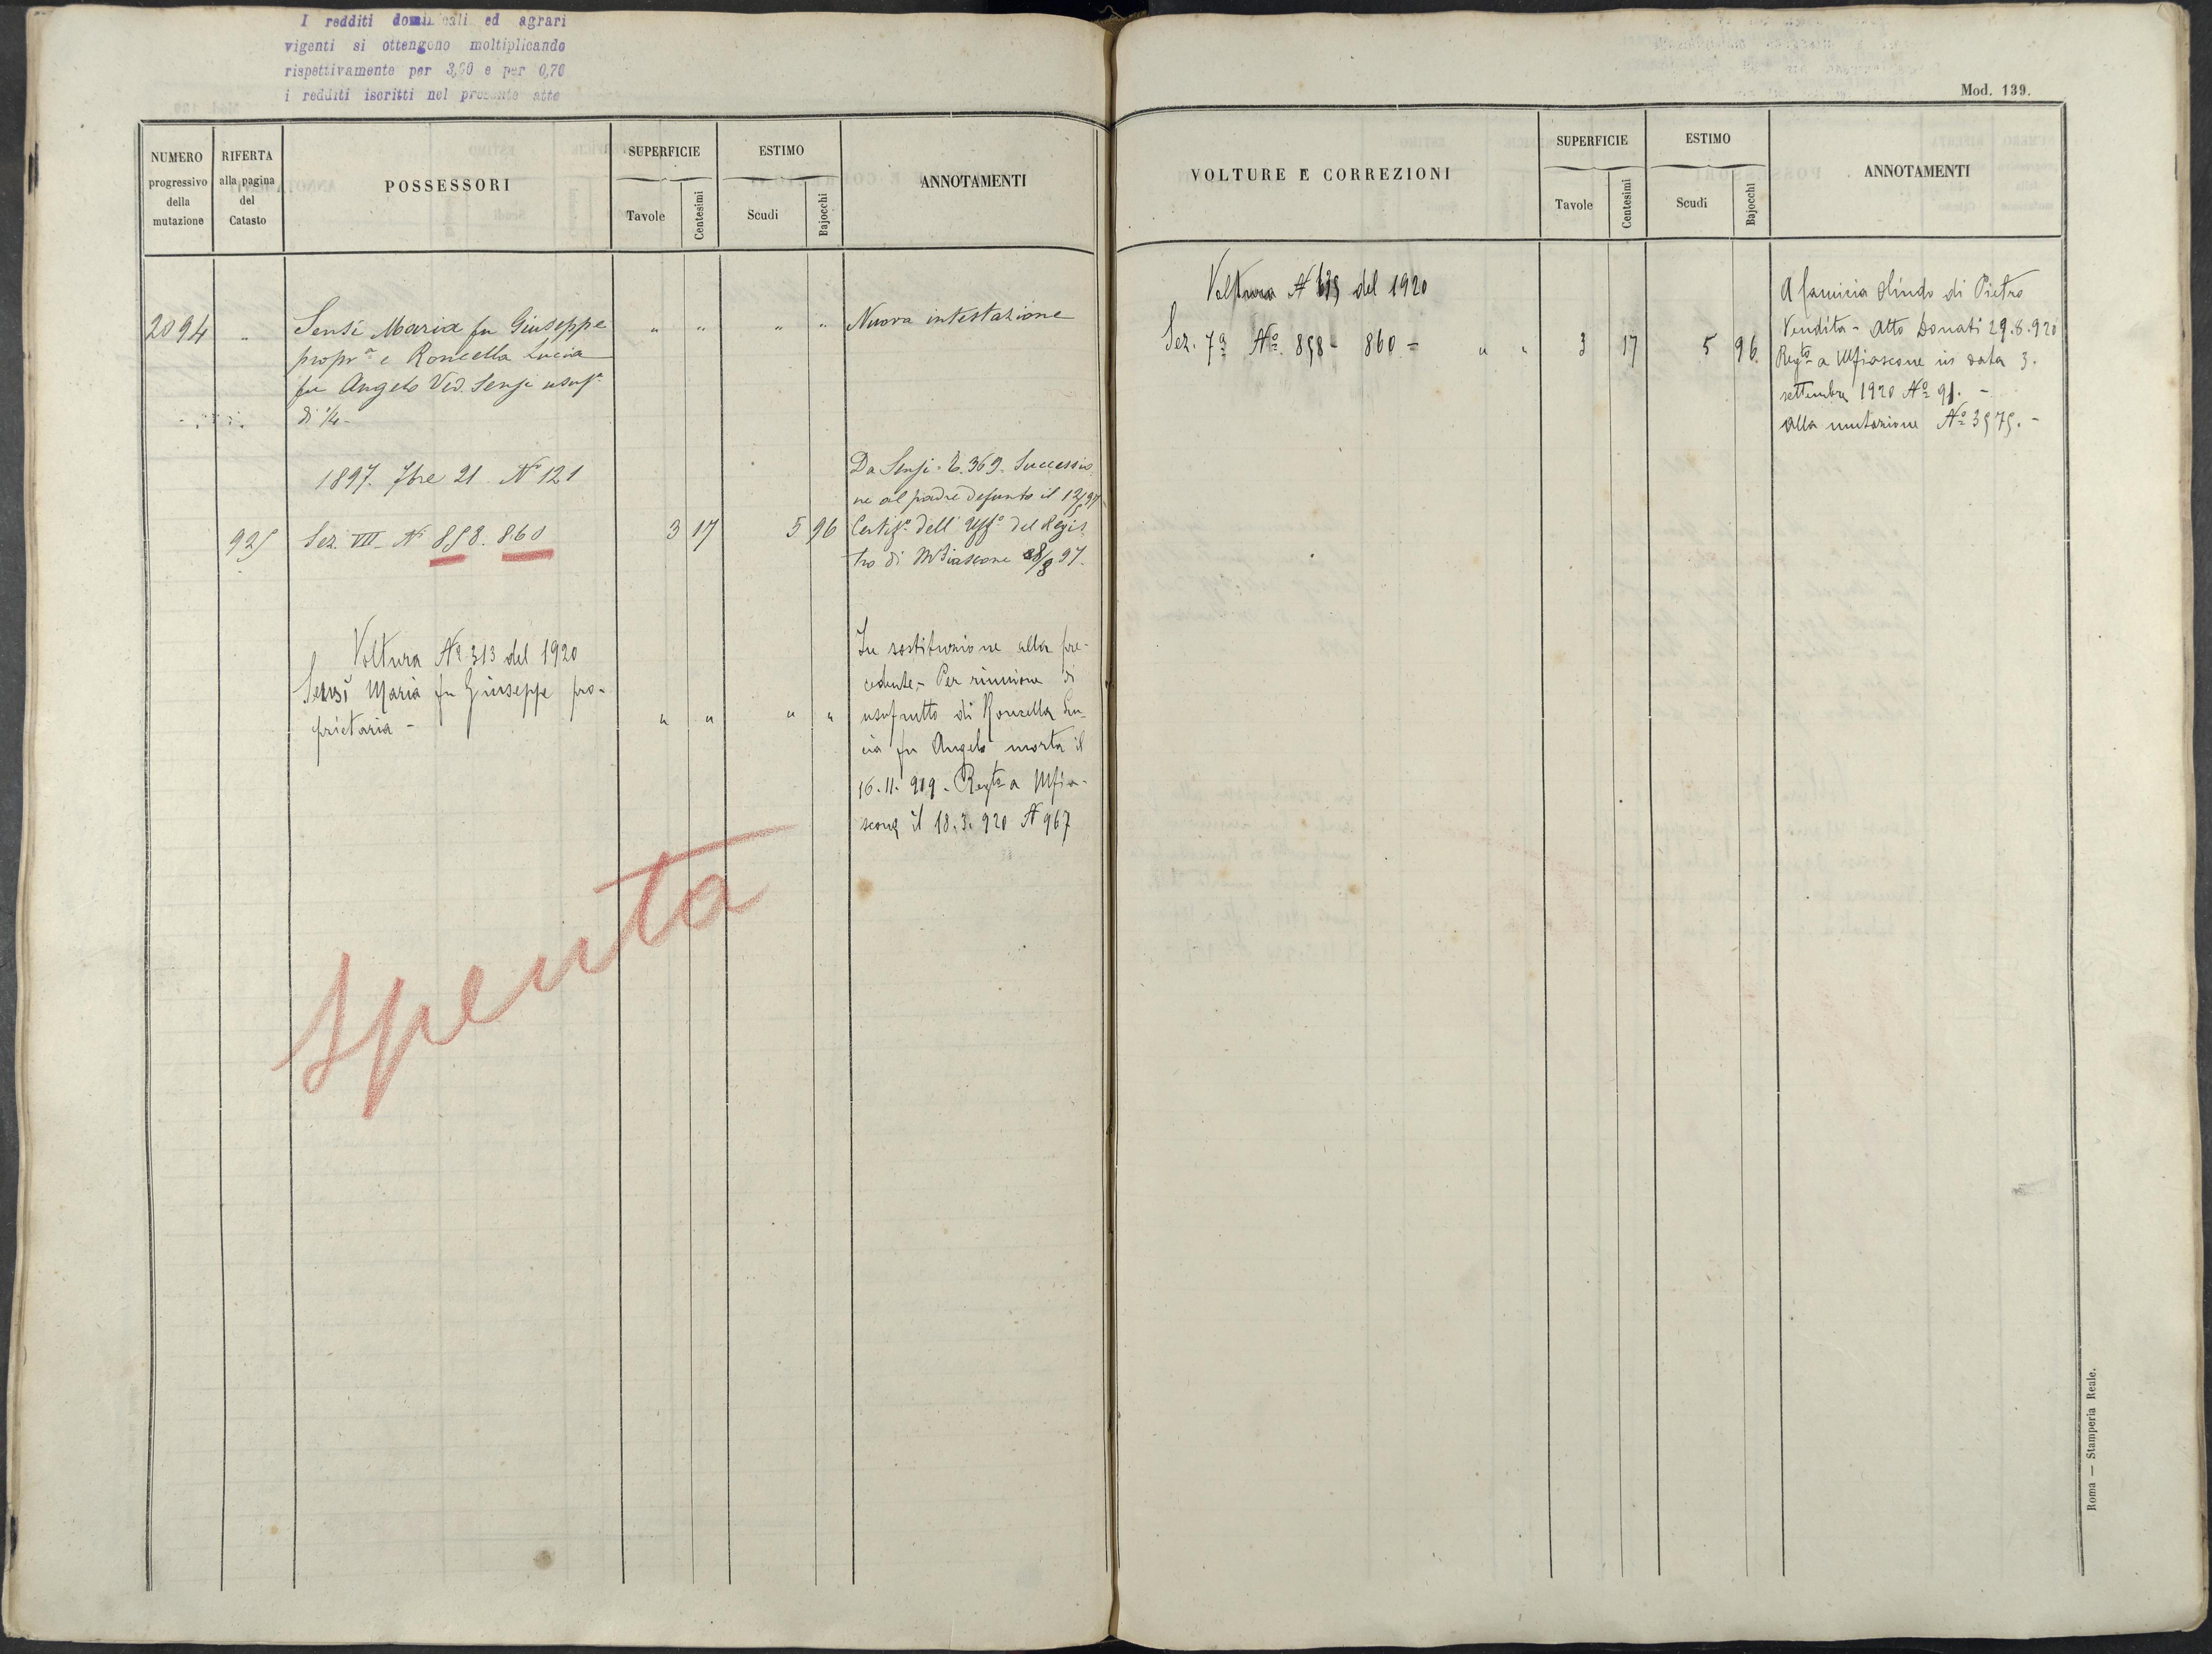 I redditi dominicali ed agrari
vigenti si ottengono moltiplicando
rispettivamente per 3,60 e per 0,70
i redditi iscritti nel presente atte
NUMERO progressivo della mutazione
RIFERTA alla pagina del Catasto
POSSESSORI
SUPERFICIE
Tavole
Centesimi
ESTIMO
Scudi
Bajocchi
ANNOTAMENTI
2094 " Sensi Maria fu Giuseppe " " " " Nuova intestazione
propr.a e Roncella Lucia
fu Angelo Ved. Sensi usuf.a
di 1/4 -
1897. 7bre 21 N° 121
Da Sensi - 369. Successio
ne al padre defunto il
925 Sez. VII N° 858. 860 3 17 5 96 Certif.o dell' Uff.o del Regis
tro di MFiascone 28/8 97.
Voltura N° 313 del 1920
Sensi Maria fu Giuseppe pro-
prietaria - " " " "
In sostituzione alla pre-
cedente,- Per riunione di
usufrutto di Roncella Lu-
cia fu Angelo morta il
16.11.919 - Reg.ta a Mfia-
scone il 18.3.920 N° 967
spenta
Mod. 139.
VOLTURE E CORREZIONI
SUPERFICIE
Tavole
Centesimi
ESTIMO
Scudi
Bajocchi
ANNOTAMENTI
Voltura N° del 1920
Sez. 7a No. 858 - 860 - " " 3 17 5 96
A Olindo di Pietro
Vendita - Atto Donati 29.8.920
Reg.to a Mfiascone in data 3.
settembre 1920 No 91. -
alla mutazione No 3575. -
Roma — Stamperia Reale.